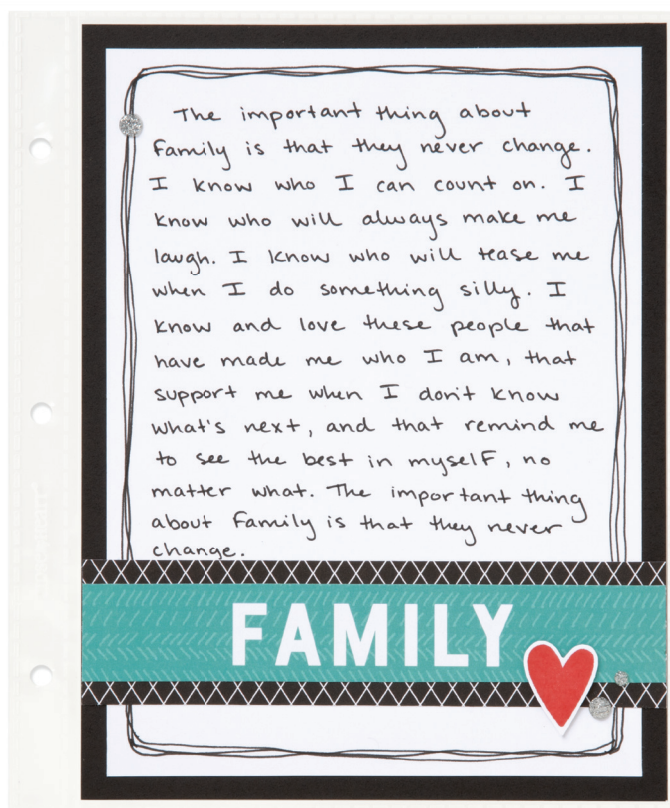 The important thing about
family is that they never change.
I know who I can count on. I
know who will always make me
laugh. I know who will tease me
when I do something silly. I
know and love these people that
have made me who I am, that
support me when I don't know
what's next, and that remind me
to see the best in myself, no
matter what. The important thing
about family is that they never
change.
FAMILY